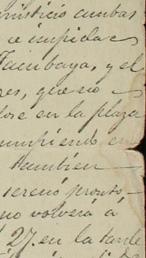 misticio ambas
e impidae
Tacubaya, y el
es, que no
dose en la plaza
umpiendo en
tambien
sereno pronto,
no volverá á
27. en la tarde